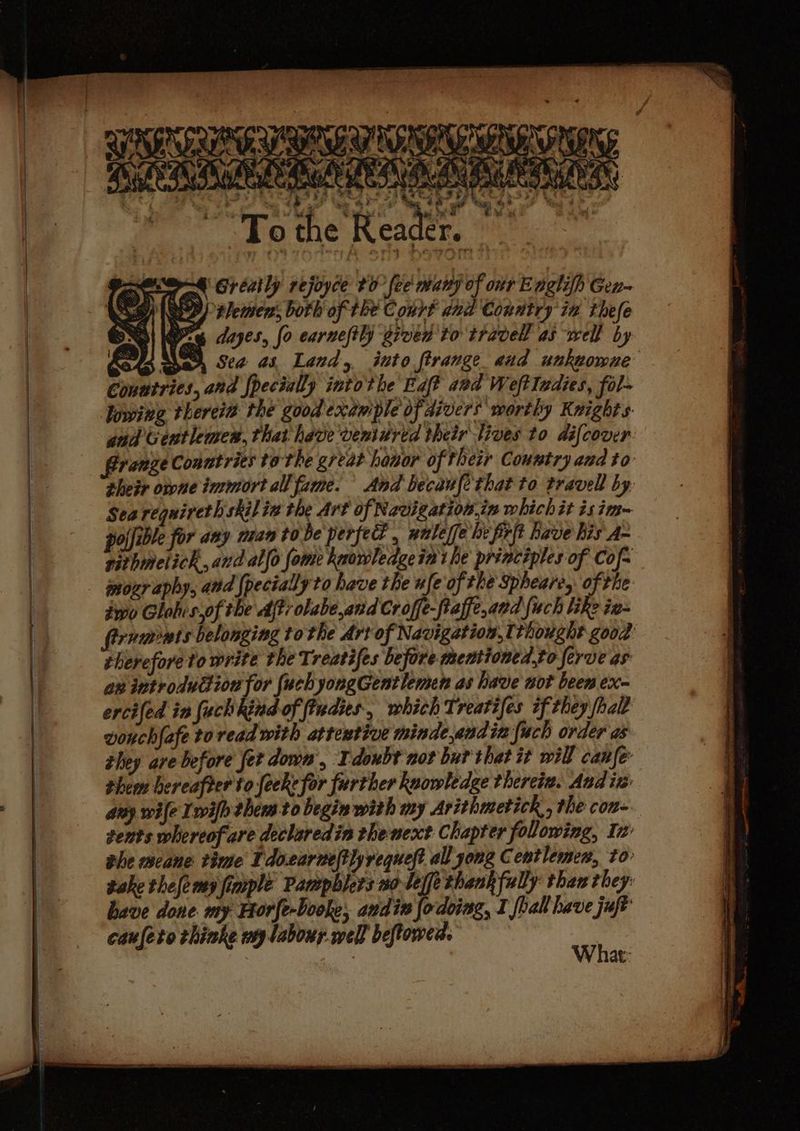 To the Reader.
I Greatly rejoyce to ſee many of our Engliſh Gen-
tlemen, both of the Court and Country in theſe
dayes, ſo earneſtly given to travell as well by
Sea as Land, into ſtrange and unknowne
Countries, and ſpecially into the Eaſt and Weſt Indies, fol-
lowing therein the good example of divers worthy Knights
and Gentlemen, that have ventured their lives to diſcover
ſtrange Countries to the great honor of their Country and to
their owne immortall fame. And becauſe that to travell by
Sea requireth skil in the Art of Navigation, in which it is im-
poſſible for any man to be perfect, unleſſe he firſt have his A-
rithmetick, and alſo ſome knowledge in the principles of Coſ-
mography, and ſpecially to have the uſe of the Spheare, of the
two Globes, of the Aſtrolabe, and Croſſe-ſtaffe, and ſuch like in-
ſtruments belonging to the Art of Navigation, I thought good
therefore to write the Treatiſes before mentioned, to ſerve as
an introduction for ſuch yong Gentlemen as have not been ex-
erciſed in ſuch kind of ſtudies, which Treatiſes if they ſhall
vouchſafe to read with attentive minde, and in ſuch order as
they are before ſet down, I doubt not but that it will cauſe
them hereafter to ſeeke for further knowledge therein. And in
any wiſe I wiſh them to begin with my Arithmetick, the con-
tents whereof are declared in the next Chapter following, In
the meane time I do earneſtly requeſt all yong Gentlemen, to
take theſe my ſimple Pamphlets no leſſe thankfully than they
have done my Horſe-booke, and in ſo doing, I ſhall have juſt
cauſe to thinke my labour well beſtowed.
What